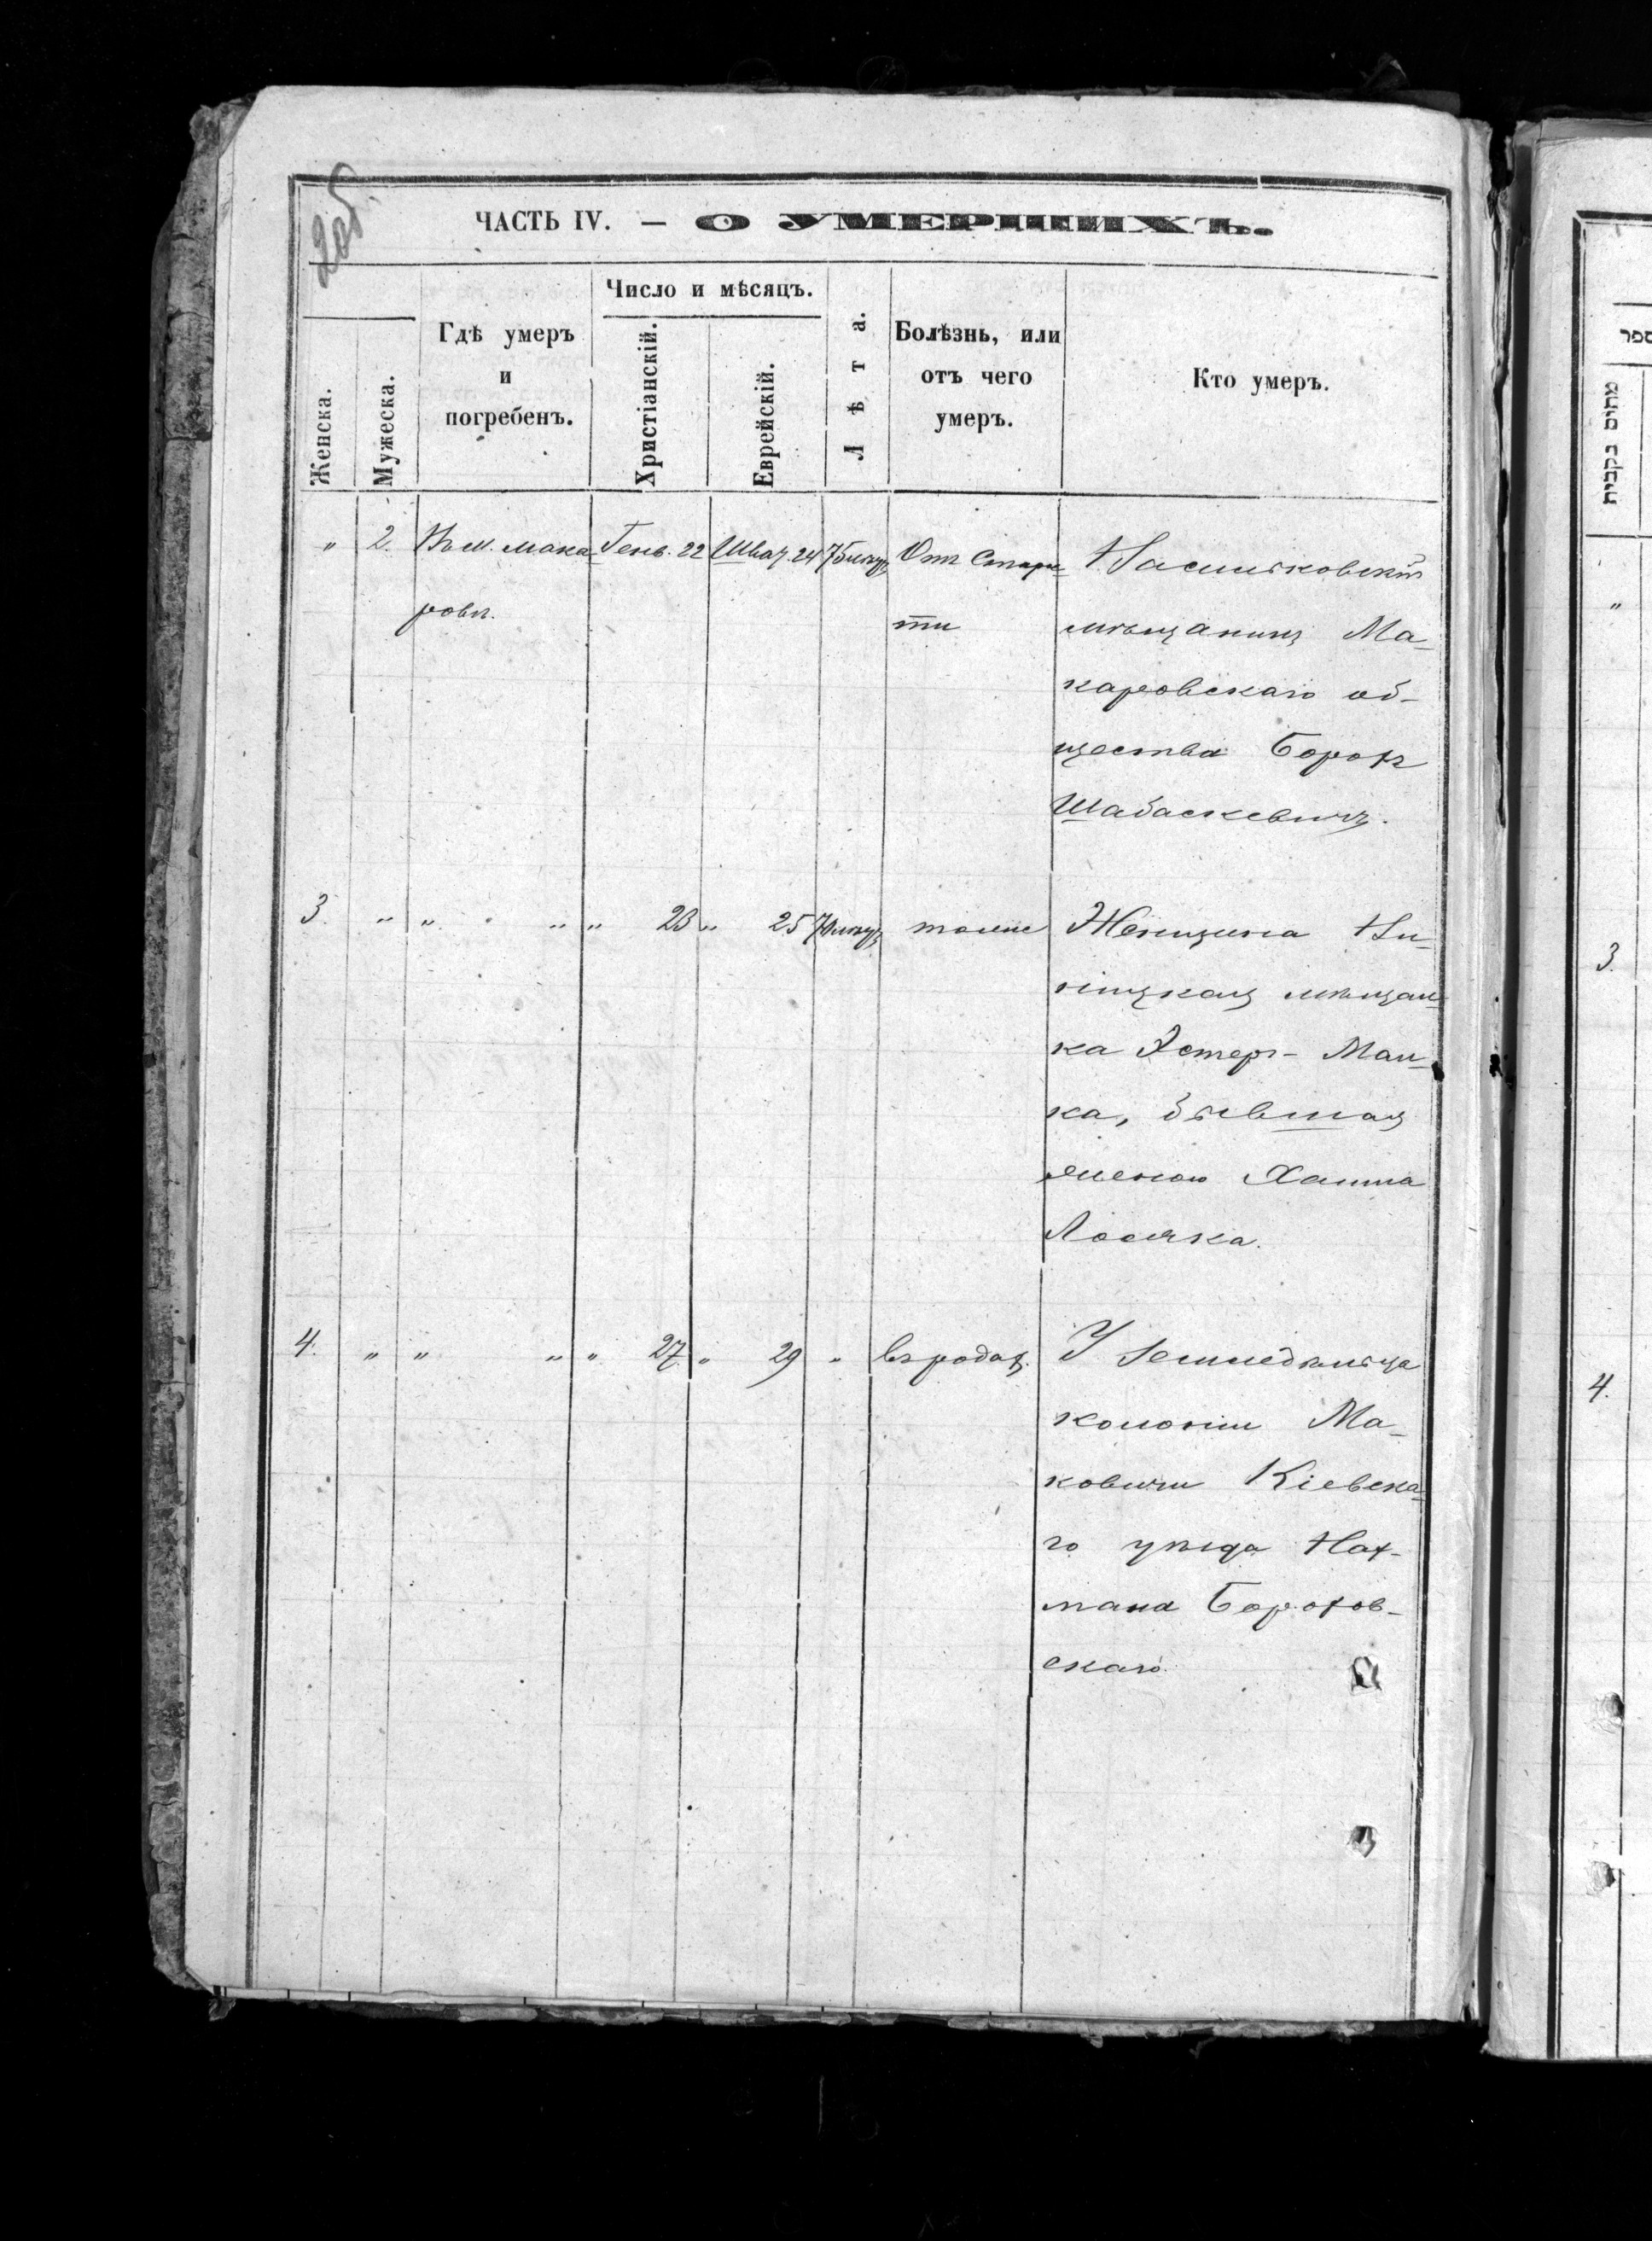 2об.
ЧАСТЬ IV. — О УМЕРШИХЪ.
Женска.
Мужеска.
Гдѣ умеръ
и
погребенъ.
Число и мѣсяцъ.
Христіанскій.
Еврейскій.
Лѣта.
Болѣзнь, или
отъ чего
умеръ.
Кто умеръ.
" 2. Въ м. Мака- Генв. 22 Шват. 24 75 Отъ Старос-
ровѣ.
ти
мѣщанинъ Ма-
каровскаго об-
щества Борох
Шабаскевичъ.
3. " " " " 23 " 25 70 тоже Женщина
мѣщан-
ка Эстеръ- Мал-
ка, бывшая
женою Хаима
Лосяка.
4. " " " " 27 " 29 " въ родах. У Земледѣльца
колоніи Ма-
ковичи Кіевска-
го уѣзда Нах-
мана Борохов-
скаго.
ספר
מתים
"
3.
4.